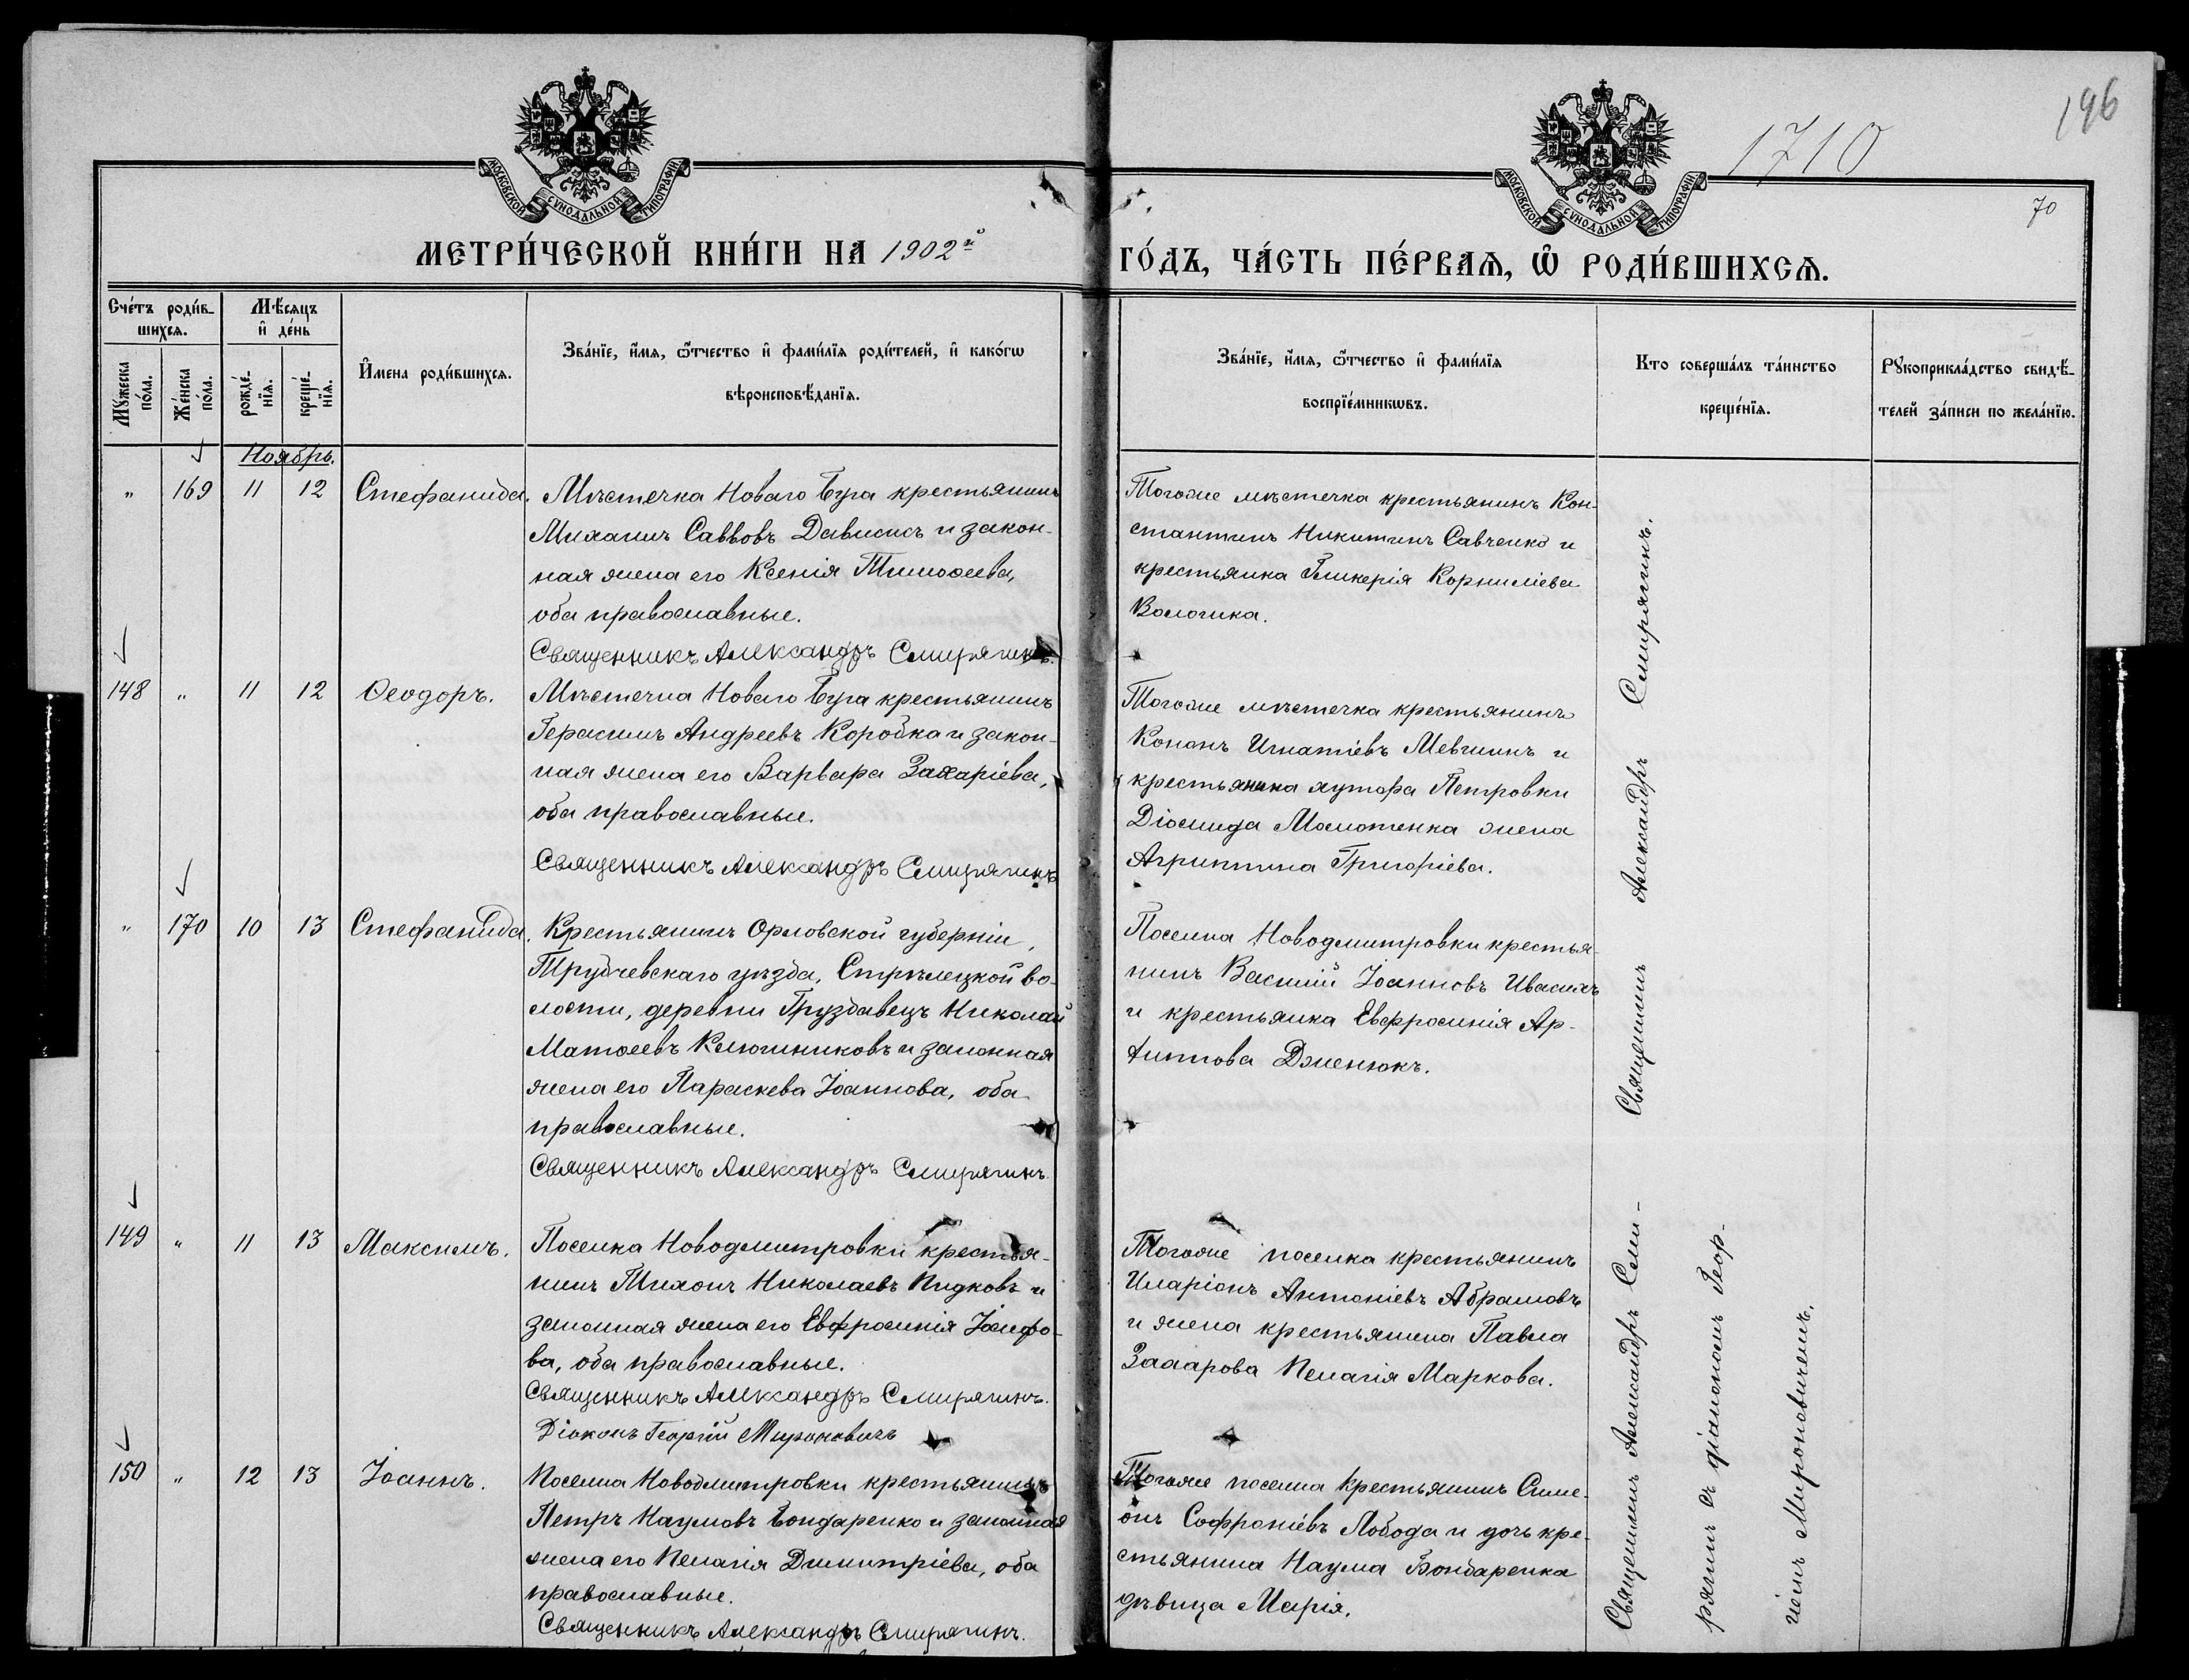 1710
196
70
МОСКОВСКОЙ СѴНОДАЛЬНОЙ ТИПОГРАФІИ
МОСКОВСКОЙ СѴНОДАЛЬНОЙ ТИПОГРАФІИ
МЕТРИ́ЧЕСКОЙ КНИ́ГИ НА 1902й
ГО́ДЪ, ЧА́СТЬ ПЕ́РВАѦ, Ѡ҆ РОДИ́ВШИХСѦ.
Сче́тъ роди́в-
шихсѧ.
Мꙋ́жеска по́ла.
Же́нска по́ла.
Мѣ́сѧцъ
и҆ де́нь
рожде́-
нїѧ.
креще́-
нїѧ.
И҆мена роди́вшихсѧ.
Зва́нїе, и҆́мѧ, ѻ҆́тчество и҆ фами́лїѧ роди́телей, и҆ како́гѡ
вѣроисповѣ́данїѧ.
Зва́нїе, и҆́мѧ, ѻ҆́тчество и҆ фами́лїѧ
воспрїе́мникѡвъ.
Кто соверша́лъ та́инство
креще́нїѧ.
Рꙋкоприкла́дство свидѣ́-
телей за́писи по жела́нїю.
Ноябрь.
" 169 11 12 Стефанида.
Мѣстечка Новаго Буга крестьянинъ
Михаилъ Саввовъ Дависисъ и закон-
ная жена его Ксенія Тимоѳеева,
оба православные.
Священникъ Александръ Смирягинъ.
Тогоже мѣстечка крестьянинъ Кон-
стантинъ Никитинъ Савченко и
крестьянка Гликерія Корниліева
148 " 11 12 Ѳеодоръ.
Мѣстечка Новаго Буга крестьянинъ
Герасимъ Андреевъ Коробка и закон-
ная жена его Варвара Захаріева,
оба православные.
Священникъ Александръ Смирягинъ
Тогоже мѣстечка крестьянинъ
Кононъ Игнатіевъ и
крестьянина хутора Петровки
Діомида Молотенка жена
Агриппина Григоріева.
" 170 10 13 Стефанида.
Крестьянинъ Орловской губерніи,
Трубчевскаго уѣзда, Стрѣлецкой во-
лости, деревни Груздавецъ Николай
Матѳеевъ Ключниковъ и законная
жена его Параскева Іоаннова, оба
православные.
Священникъ Александръ Смирягинъ.
Поселка Новодмитровки крестья-
нинъ Василій Іоанновъ Ивасикъ
и крестьянка Евфросинія Ар-
хиппова Дженюкъ.
149 " 11 13 Максимъ.
Поселка Новодмитровки крестья-
нинъ Тихонъ Николаевъ Пидковъ и
законная жена его Евфросинія Іосифо-
ва, оба православные.
Священникъ Александръ Смирягинъ.
Діаконъ Георгій Мироновичъ
Тогоже поселка крестьянинъ
Иларіонъ Антоніевъ Абрамовъ
и жена крестьянина Павла
Захарова Пелагія Маркова.
150 " 12 13 Іоаннъ.
Поселка Новодмитровки крестьянинъ
Петръ Наумовъ Бондаренко и законная
жена его Пелагія Димитріева, оба
православные.
Священникъ Александръ Смирягинъ.
Тогоже поселка крестьянинъ Симе-
онъ Софроніевъ Лобода и дочь кре-
стьянина Наума Бондаренка
дѣвица Марія.
Священникъ Александръ Смирягинъ.
Священникъ Александръ Сми-
рягинъ съ діакономъ Геор-
гіемъ Мироновичемъ.